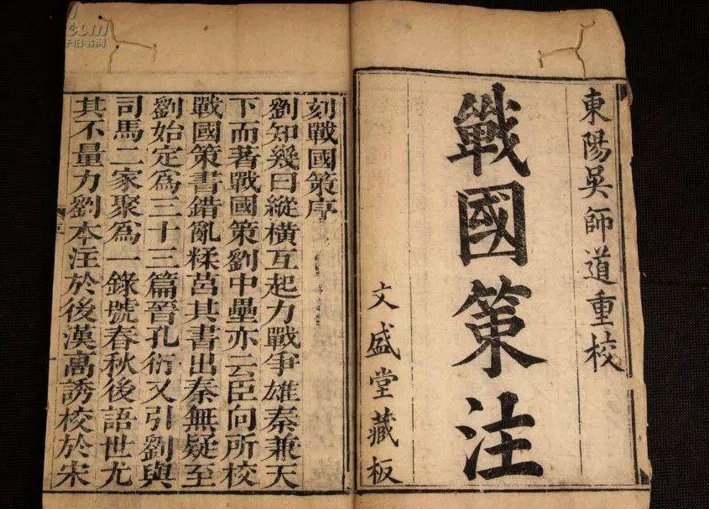 東陽吳師道重校
戰國策注
文盛堂藏板
刻戰國策序
劉知幾曰縱橫互起力戰爭雄秦兼天
下而著戰國策劉中壘亦云臣向所校
戰國策書錯亂糅莒其書出秦無疑至
劉始定為三十三篇晉孔衍又引劉與
司馬二家聚為一錄號春秋後語世尤
其不量力劉本注於後漢高誘校於宋